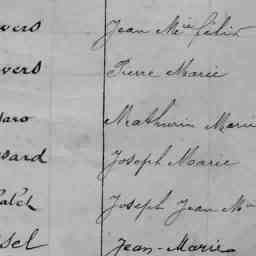 vers Jean Mie félix
vers Pierre Marie
Mathurin Marie
sard Joseph Marie
Joseph Jean Mie
sel Jean-Marie